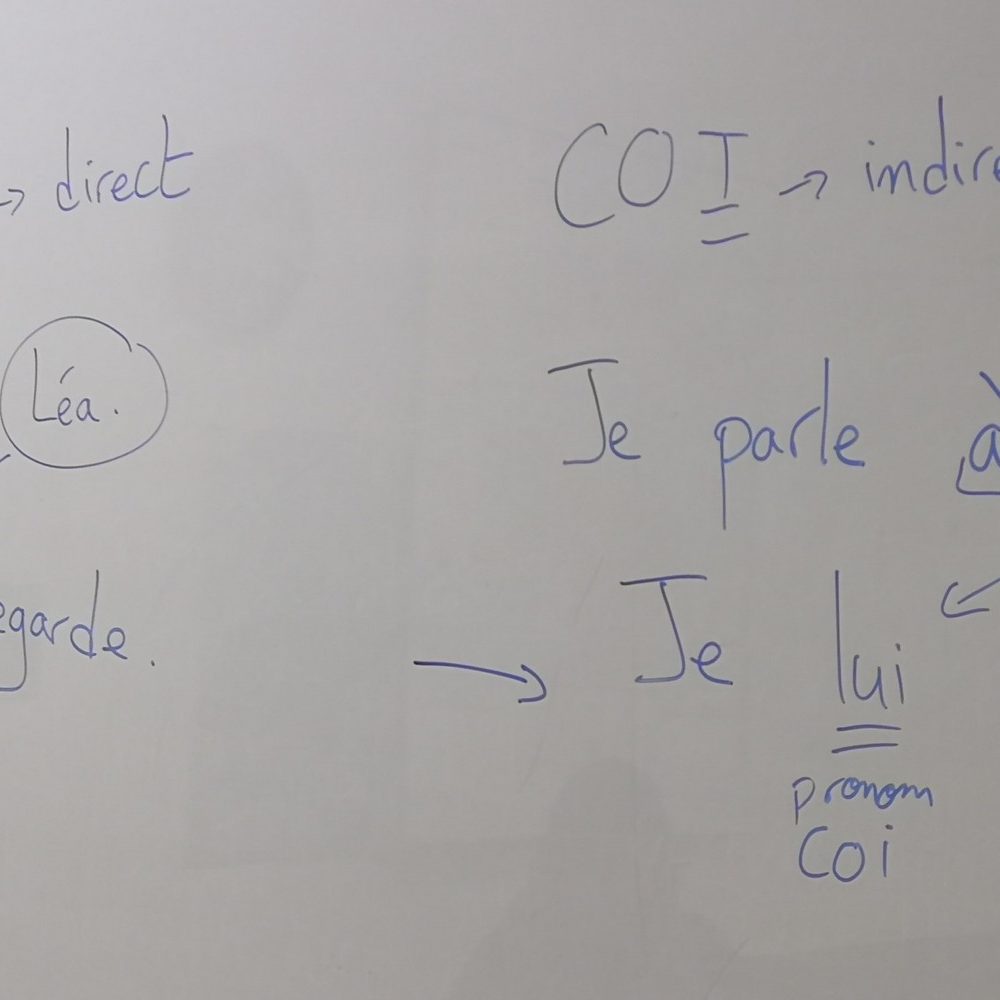 → direct
COI → indire
Léa.
Je parle à
egarde.
→ Je lui
pronom
COi